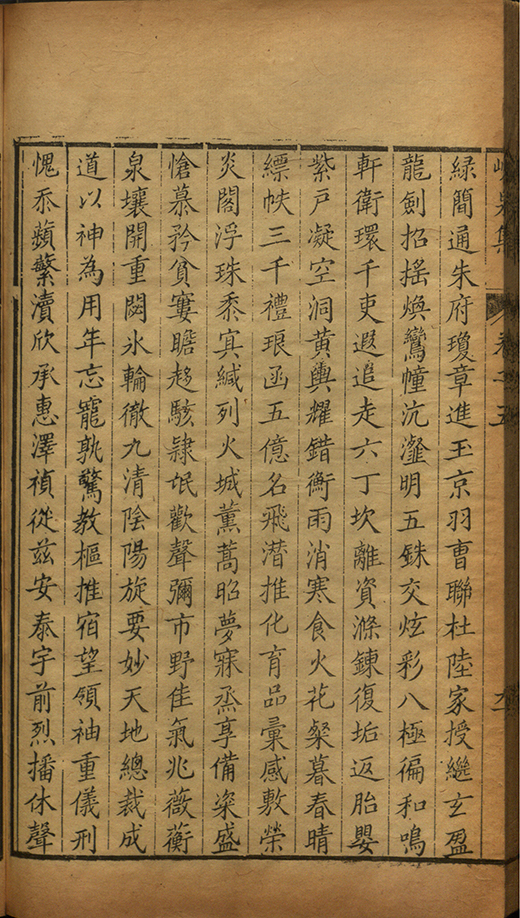 緑簡通朱府瓊章進玉京羽曹聯杜陸家授繼玄盈
龍劍招摇煥鸞幢沆瀣明五銖交炫彩八極徧和鳴
軒衛環千吏遐追走六丁坎離資滌鍊復垢返胎嬰
紫戶凝空洞黄輿耀錯衡雨消寒食火花粲暮春晴
縹帙三千禮琅函五億名飛潜推化育品彙感敷榮
炎閣浮珠黍寘緘列火城薰蒿昭夢寐烝享備粢盛
愴慕矜貧窶瞻趍駭隷氓歡聲彌市野佳氣兆薇蘅
泉壤開重闕氷輪徹九清陰陽旋要妙天地總裁成
道以神為用年忘寵孰驚教樞推宿望領袖重儀刑
愧忝蘋蘩瀆欣承惠澤禎從兹安泰宇前烈播休聲